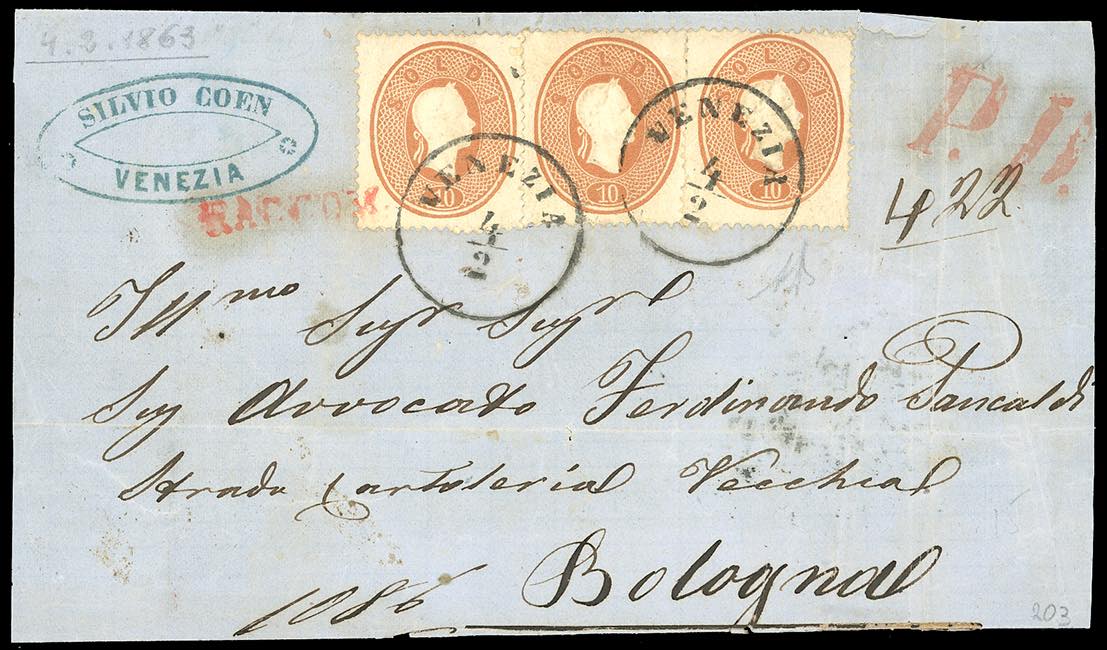 4.2.1863
SILVIO COEN
VENEZIA
RACCOM
SOLDI 10
SOLDI 10
SOLDI 10
VENEZIA
4/2
VENEZIA
4/2
P.D.
422
Ill.mo Sigr Sigr
Sig Avvocato Ferdinando Pancaldi
Strada Cartoleria Vecchia
Bologna
1086
203